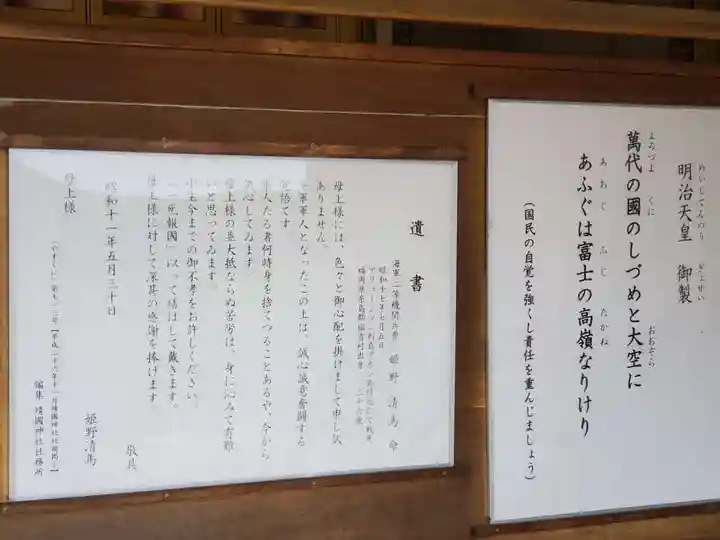 明治天皇 御製
めいじてんのう ぎょせい
萬代の國のしづめと大空に
よろづよ くに おおぞら
あふぐは富士の高嶺なりけり
あおぐ ふじ たかね
(国民の自覚を強くし責任を重んじましょう)
遺書
海軍二等機関兵曹 姫野清馬命
昭和十七年七月五日
福岡県糸島郡福吉村出身
母上様には、色々と御心配を掛けまして申し訳
ありません。
軍人となったこの上は、誠心誠意奮闘する
覚悟です
人たる者何時身を捨てつることあるや、今から
決心してゐます
母上様の並大抵ならぬ苦労は、身に沁みて有難
いと思ってゐます。
小生今までの御不孝をお許しください。
「一死報国」以って償はして戴きます。
母上様に対して深甚の感謝を捧げます
敬具
昭和十一年五月三十日
姫野清馬
母上様
編集 靖國神社社務所